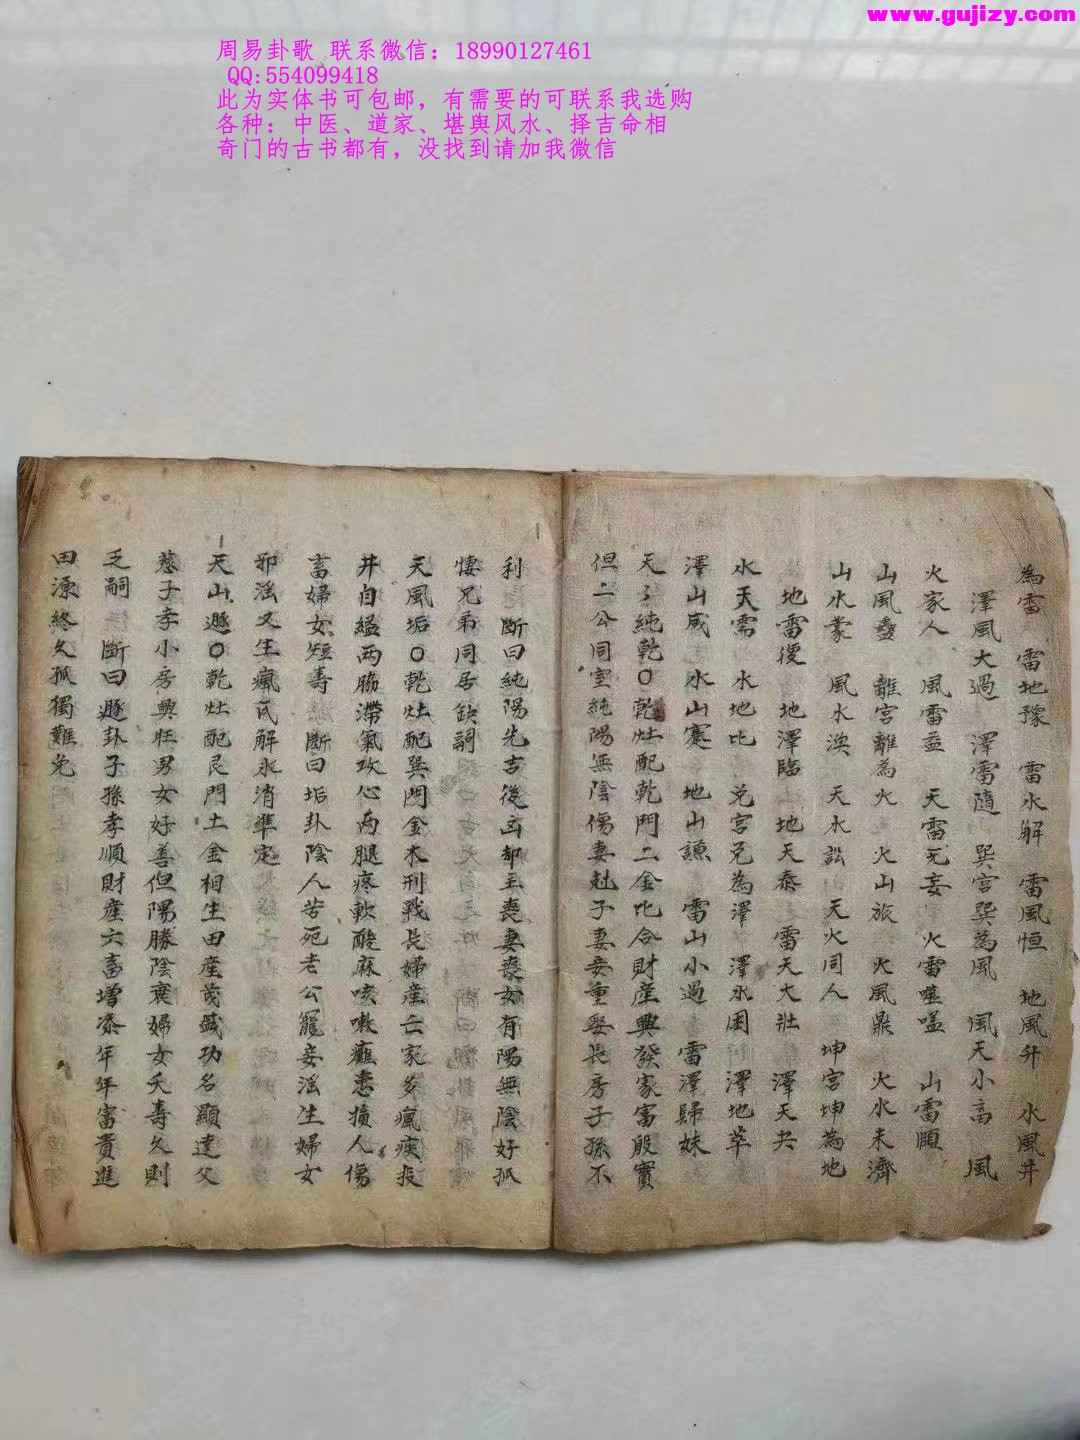 www.gujizy.com
周易卦歌 联系微信：18990127461
QQ:554099418
此为实体书可包邮，有需要的可联系我选购
各种：中医、道家、堪舆风水、择吉命相
奇门的古书都有，没找到请加我微信
為雷 雷地豫 雷水解 雷風恒 地風升 水風井
澤風大過 澤雷隨 巽宮巽為風 風天小畜 風
火家人 風雷益 天雷无妄 火雷噬嗑 山雷頤
山風蠱 離宮離為火 火山旅 火風鼎 火水未濟
山水蒙 風水渙 天水訟 天火同人 坤宮坤為地
地雷復 地澤臨 地天泰 雷天大壯 澤天夬
水天需 水地比 兌宮兌為澤 澤水困 澤地萃
澤山咸 水山蹇 地山謙 雷山小過 雷澤歸妹
天純乾〇乾灶配乾門二金比合財產興發家富殷實
但二公同室純陽無陰傷妻尅子妻妾重娶長房子孫不
利 斷曰純陽先吉後凶却主喪妻喪女有陽無陰好孤
悽兄弟同居缺嗣
天風垢〇乾灶配巽門金木刑戰長婦產亡家多瘋疾投
井自縊兩脇滯氣攻心兩腿疼軟酸麻咳嗽癱患損人傷
畜婦女短壽 斷曰垢卦陰人苦死老公寵妾滛生婦女
邪滛又生瘋氏解氷消準定
天山遯〇乾灶配艮門土金相生田產茂盛功名顯達父
慈子孝小房興旺男女好善但陽勝陰衰婦女夭壽久則
乏嗣 斷曰遯卦子孫孝順財產六畜增添年年富貴進
田源終久孤獨難免